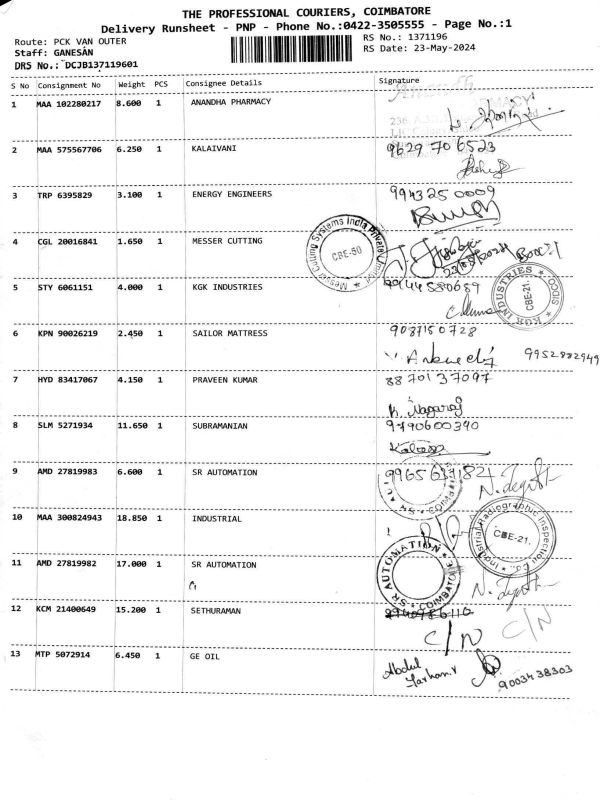 THE PROFESSIONAL COURIERS, COIMBATORE
Delivery Runsheet - PNP - Phone No.:0422-3505555 - Page No.:1
Route: PCK VAN OUTER
RS No.: 1371196
Staff: GANESAN
RS Date: 23-May-2024
DRS No.: DCJB137119601
S No Consignment No Weight PCS Consignee Details Signature
1 MAA 102280217 8.600 1 ANANDHA PHARMACY
2 MAA 575567706 6.250 1 KALAIVANI 9629706523
3 TRP 6395829 3.100 1 ENERGY ENGINEERS 9943250009
4 CGL 20016841 1.650 1 MESSER CUTTING
Messer Cutting Systems India Private Limited
CBE-50
5 STY 6061151 4.000 1 KGK INDUSTRIES 9944580689
KGK INDUSTRIES
CBE-21.
6 KPN 90026219 2.450 1 SAILOR MATTRESS 9037150728
9952882949
7 HYD 83417067 4.150 1 PRAVEEN KUMAR 8870137097
K. Nagaraj
8 SLM 5271934 11.650 1 SUBRAMANIAN 9790600340
9 AMD 27819983 6.600 1 SR AUTOMATION
10 MAA 300824943 18.850 1 INDUSTRIAL
Industrial Radiographic Inspection Co.,
CBE-21.
11 AMD 27819982 17.000 1 SR AUTOMATION
SR AUTOMATION
COIMBATORE
12 KCM 21400649 15.200 1 SETHURAMAN
C/N C/N
13 MTP 5072914 6.450 1 GE OIL
Abdul
9003438303